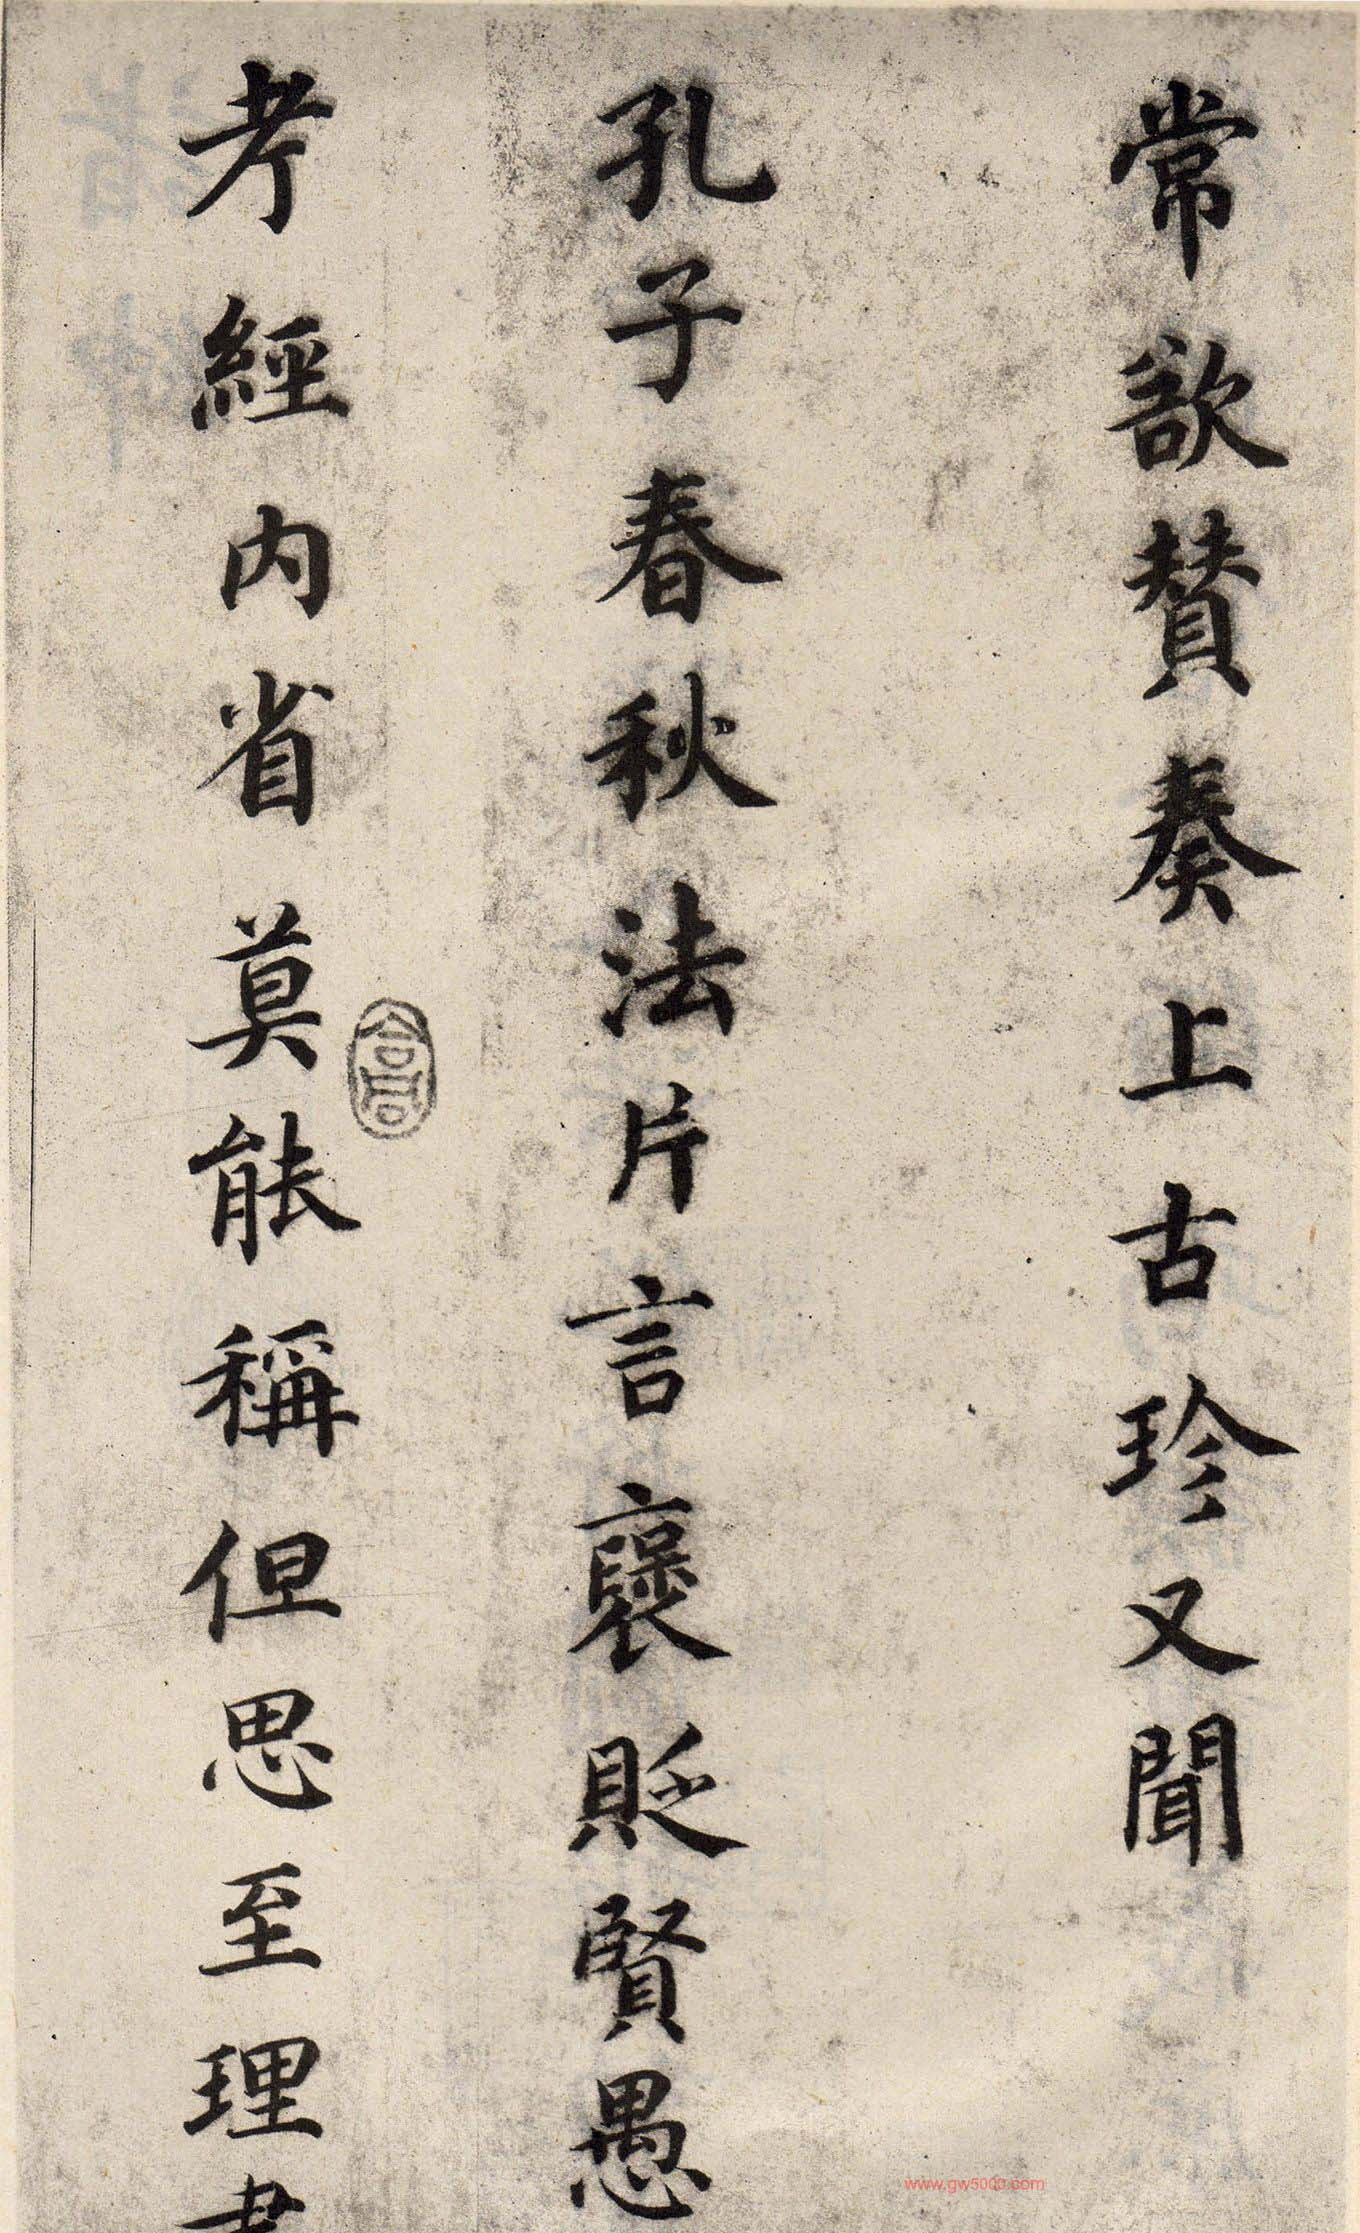 常欲賛奏上古珍又聞
孔子春秋法片言褒貶賢愚
考經內省莫能稱但思至理書
www.gw5000.com